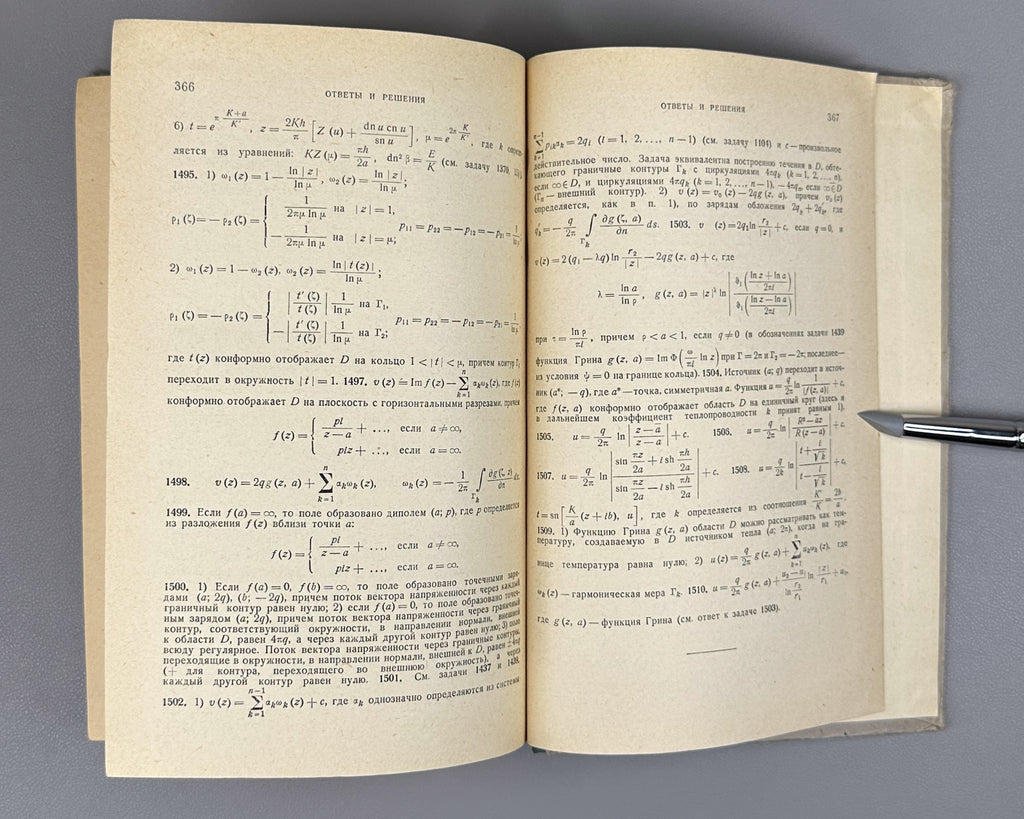 366
ОТВЕТЫ И РЕШЕНИЯ
6) t = e^{π (K+a)/K'}, z = 2Kh/π [Z (u) + dn u cn u / sn u], μ = e^{2π K/K'}, где k опре-
ляется из уравнений: KZ (μ) = πh/2a, dn² β = E/K (см. задачу 1370,
1495. 1) ω₁ (z) = 1 − ln |z| / ln μ, ω₂ (z) = ln |z| / ln μ;
ρ₁ (ζ) = − ρ₂ (ζ) = { 1 / 2πμ ln μ на |z| = 1,
− 1 / 2πμ ln μ на |z| = μ;
p₁₁ = p₂₂ = −p₁₂ = −p₂₁ = 1/ln μ
2) ω₁ (z) = 1 − ω₂ (z), ω₂ (z) = ln |t (z)| / ln μ;
ρ₁ (ζ) = − ρ₂ (ζ) = { |t′ (ζ) / t (ζ)| 1 / ln μ на Γ₁,
− |t′ (ζ) / t (ζ)| 1 / ln μ на Γ₂;
p₁₁ = p₂₂ = −p₁₂ = −p₂₁ = 1/ln μ
где t (z) конформно отображает D на кольцо 1 < |t| < μ, причем контур Γ₁
переходит в окружность |t| = 1. 1497. v (z) = Im f (z) − ∑_{k=1}^{n} αₖωₖ (z), где f (z)
конформно отображает D на плоскость с горизонтальными разрезами, причем
f (z) = { pi / z − a + ..., если a ≠ ∞,
piz + ..., если a = ∞.
1498. v (z) = 2qg (z, a) + ∑_{k=1}^{n} αₖωₖ (z), ωₖ (z) = − 1/2π ∫_{Γₖ} ∂g (ζ, z)/∂n ds.
1499. Если f (a) = ∞, то поле образовано диполем (a; p), где p определяется
из разложения f (z) вблизи точки a:
f (z) = { pi / z − a + ..., если a ≠ ∞,
piz + ..., если a = ∞.
1500. 1) Если f (a) = 0, f (b) = ∞, то поле образовано точечными заря-
дами (a; 2q), (b; − 2q), причем поток вектора напряженности через каждый
граничный контур равен нулю; 2) если f (a) = 0, то поле образовано точеч-
ным зарядом (a; 2q), причем поток вектора напряженности через граничный
контур, соответствующий окружности, в направлении нормали, внешней
к области D, равен 4πq, а через каждый другой контур равен нулю; 3) поле
всюду регулярное. Поток вектора напряженности через граничные контуры,
переходящие в окружности, в направлении нормали, внешней к D, равен ±4πq
(+ для контура, переходящего во внешнюю окружность), а через
каждый другой контур равен нулю. 1501. См. задачи 1437 и 1438.
1502. 1) v (z) = ∑_{k=1}^{n−1} αₖωₖ (z) + c, где αₖ однозначно определяются из системы
ОТВЕТЫ И РЕШЕНИЯ
367
∑_{k=1}^{n−1} pₗₖαₖ = 2qₗ (l = 1, 2, ..., n − 1) (см. задачу 1494) и c — произвольное
действительное число. Задача эквивалентна построению течения в D, обте-
кающего граничные контуры Γₖ с циркуляциями 4πqₖ (k = 1, 2, ..., n),
если ∞ ∈ D, и циркуляциями 4πqₖ (k = 1, 2, ..., n − 1), −4πqₙ, если ∞ ∉ D
(Γₙ — внешний контур). 2) v (z) = v₀ (z) − 2qg (z, a), причем v₀ (z)
определяется, как в п. 1), по зарядам обложения 2qₖ + 2q′ₖ, где
q′ₖ = − q/2π ∫_{Γₖ} ∂g (ζ, a)/∂n ds. 1503. v (z) = 2q₁ ln r₂/|z| + c, если q = 0, и
v (z) = 2 (q₁ − λq) ln r₂/|z| − 2qg (z, a) + c, где
λ = ln a / ln ρ, g (z, a) = |z|^λ ln |ϑ₁ (ln z + ln a / 2πi) / ϑ₁ (ln z − ln a / 2πi)|
при τ = ln ρ / πi, причем ρ < a < 1, если q ≠ 0 (в обозначениях задачи 1439
функция Грина g (z, a) = Im Φ (ω/πi ln z) при Γ = 2π и Γ₂ = − 2π; последнее—
из условия ψ = 0 на границе кольца). 1504. Источник (a; q) переходит в источ-
ник (a*; − q), где a* — точка, симметричная a. Функция u = q/2π ln 1/|f (z, a)| + c,
где f (z, a) конформно отображает область D на единичный круг (здесь и
в дальнейшем коэффициент теплопроводности k принят равным 1).
1505. u = q/2π ln |z − ā / z − a| + c. 1506. u = q/2π ln |R² − āz / R (z − a)| + c.
1507. u = q/2π ln |sin πz/2a + i sh πh/2a / sin πz/2a − i sh πh/2a| + c. 1508. u = q/2k ln |t + i/√k / t − i/√k| + c,
t = sn [K/a (z + ib), ϰ], где k определяется из соотношения K′/K = 2b/a.
1509. 1) Функцию Грина g (z, a) области D можно рассматривать как тем-
пературу, создаваемую в D источником тепла (a; 2π), когда на гра-
нице температура равна нулю; 2) u (z) = q/2π g (z, a) + ∑_{k=1}^{n} uₖωₖ (z), где
ωₖ (z) — гармоническая мера Γₖ. 1510. u = q/2π g (z, a) + u₂ − u₁ / ln r₂/r₁ ln |z|/r₁ + u₁,
где g (z, a) — функция Грина (см. ответ к задаче 1503).